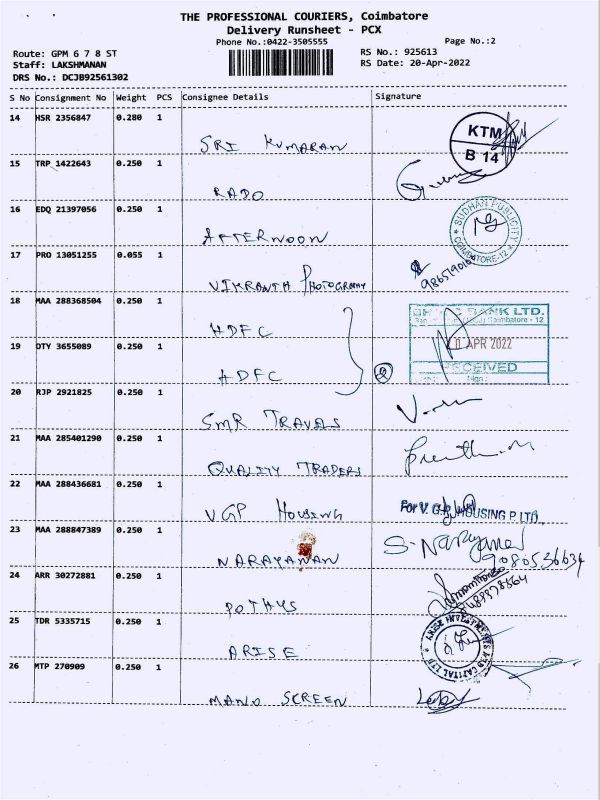 THE PROFESSIONAL COURIERS, Coimbatore
Delivery Runsheet - PCX
Phone No.:0422-3505555
Page No.:2
Route: GPM 6 7 8 ST
RS No.: 925613
Staff: LAKSHMANAN
RS Date: 20-Apr-2022
DRS No.: DCJB92561302
S No Consignment No Weight PCS Consignee Details Signature
14 HSR 2356847 0.280 1
SRI KUMARAN
KTM
B 14
15 TRP 1422643 0.250 1
RADO
16 EDQ 21397056 0.250 1
AFTERNOON
SUDHAN PUBLICITY
COIMBATORE-12
17 PRO 13051255 0.055 1
VIKRANTH PHOTOGRAPHY
18 MAA 288368504 0.250 1
HDFC
BANK LTD.
Coimbatore - 12
19 DTY 3655089 0.250 1
APR 2022
HDFC
2
RECEIVED
20 RJP 2921825 0.250 1
SMR TRAVELS
21 MAA 285401290 0.250 1
QUALITY TRADERS
22 MAA 288436681 0.250 1
VGP HOUSING
For V.G.P. HOUSING P.LTD.
23 MAA 288847389 0.250 1
NARAYANAN
S-Narayanan
9080536634
24 ARR 30272881 0.250 1
POTHYS
25 TDR 5335715 0.250 1
ARISE
ARISE INVESTMENTS
CAPITAL LTD
26 MTP 270909 0.250 1
MANO SCREEN